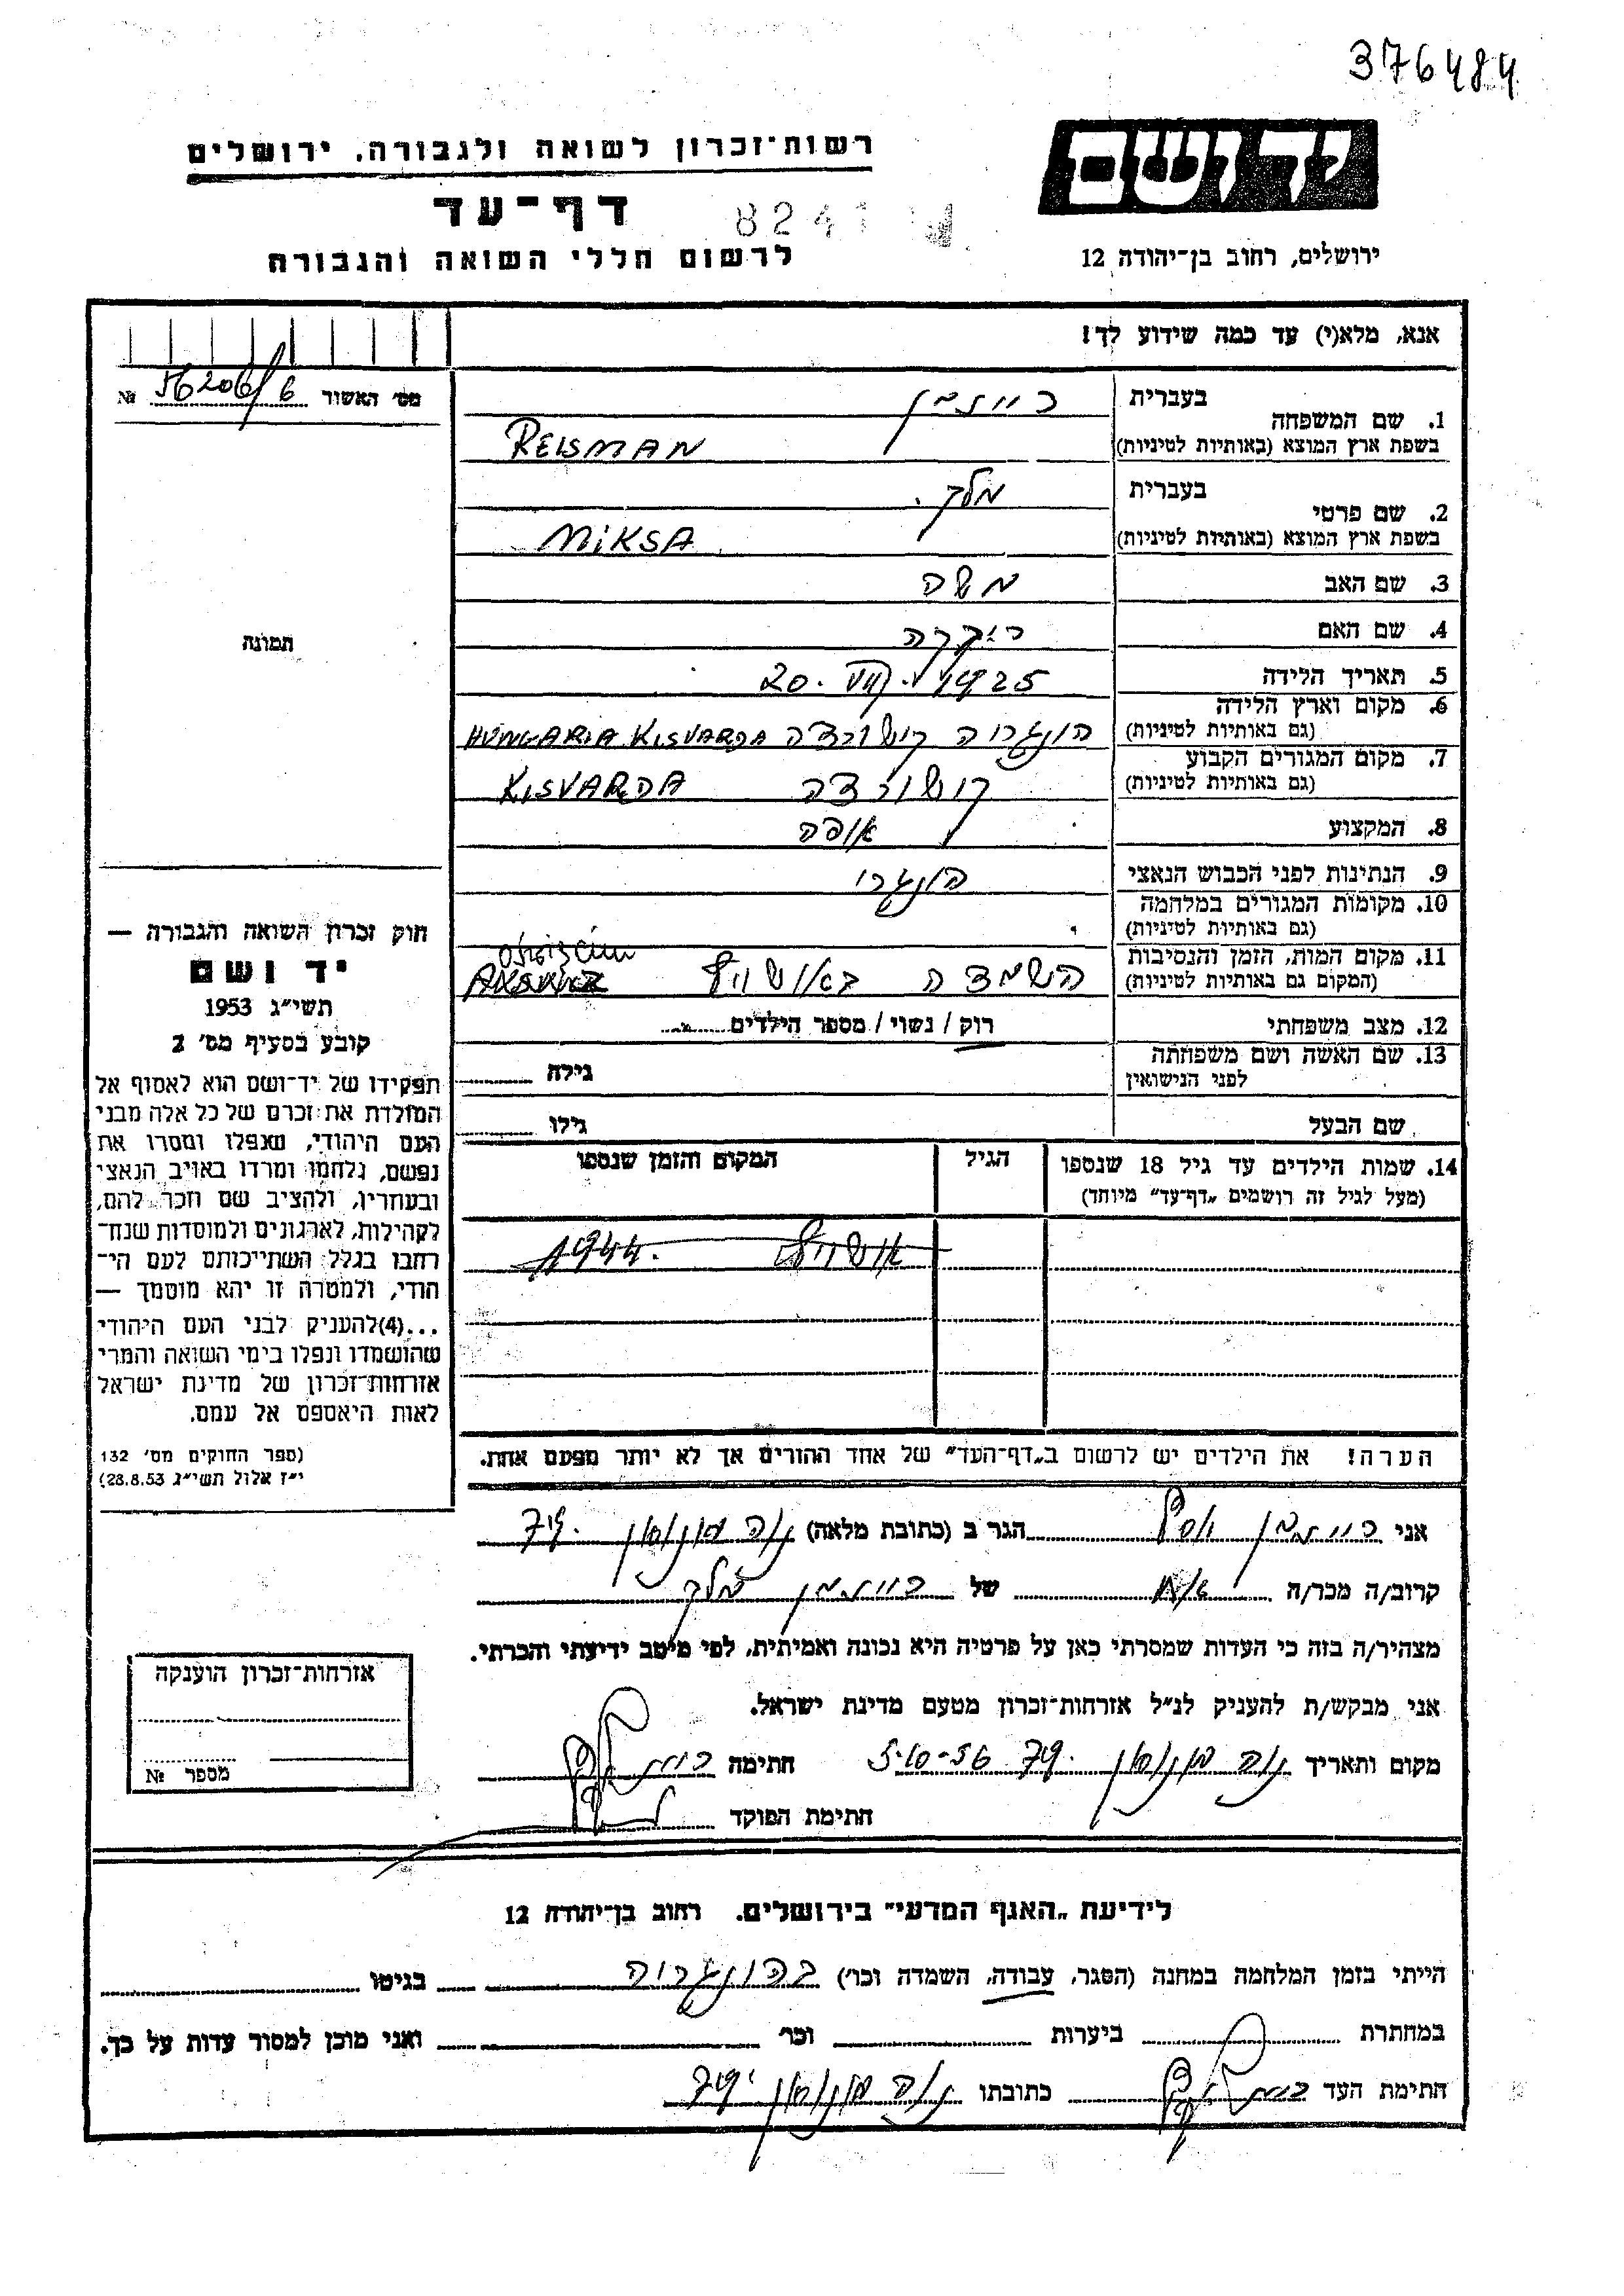 376484
יד ושם
רשות־זכרון לשואה ולגבורה, ירושלים
דף־עד
8241
לרשום חללי השואה והגבורה
ירושלים, רחוב בן־יהודה 12
אנא, מלא(י) עד כמה שידוע לך!
מס׳ האשור 56206/6 №
1. שם המשפחה
בעברית רייזמן
בשפת ארץ המוצא (באותיות לטיניות) REISMAN
2. שם פרטי
בעברית מלך
בשפת ארץ המוצא (באותיות לטיניות) MIKSA
3. שם האב משה
4. שם האם רבקה
5. תאריך הלידה 20. VII. 1925
6. מקום וארץ הלידה
(גם באותיות לטיניות) הונגריה קישוורדה HUNGARIA KISVARDA
7. מקום המגורים הקבוע
(גם באותיות לטיניות) קישוורדה KISVARDA
8. המקצוע אופה
9. הנתינות לפני הכבוש הנאצי הונגרי
10. מקומות המגורים במלחמה
(גם באותיות לטיניות)
11. מקום המות, הזמן והנסיבות
(המקום גם באותיות לטיניות) השמדה באושויץ
12. מצב משפחתי רוק / נשוי / מספר הילדים
13. שם האשה ושם משפחתה
לפני הנישואין גילה
שם הבעל גילו
14. שמות הילדים עד גיל 18 שנספו
(מעל לגיל זה רושמים „דף־עד״ מיוחד)
הגיל
המקום והזמן שנספו
אושויץ 1944
הערה! את הילדים יש לרשום ב„דף־העד״ של אחד ההורים אך לא יותר מפעם אחת.
תמונה
חוק זכרון השואה והגבורה —
יד ושם
תשי״ג 1953
קובע בסעיף מס׳ 2
תפקידו של יד־ושם הוא לאסוף אל
המולדת את זכרם של כל אלה מבני
העם היהודי, שנפלו ומסרו את
נפשם, נלחמו ומרדו באויב הנאצי
ובעוזריו, ולהציב שם וזכר להם,
לקהילות, לארגונים ולמוסדות שנח־
רבו בגלל השתייכותם לעם הי־
הודי, ולמטרה זו יהא מוסמך —
...(4) להעניק לבני העם היהודי
שהושמדו ונפלו בימי השואה והמרי
אזרחות־זכרון של מדינת ישראל
לאות היאספם אל עמם.
(ספר החוקים מס׳ 132
י״ז אלול תשי״ג 28.8.53)
אני רייזמן יוסף הגר ב (כתובת מלאה)
קרוב/ה מכר/ה אח של רייזמן מלך
מצהיר/ה בזה כי העדות שמסרתי כאן על פרטיה היא נכונה ואמיתית, לפי מיטב ידיעתי והכרתי.
אני מבקש/ת להעניק לנ״ל אזרחות־זכרון מטעם מדינת ישראל.
מקום ותאריך 5-10-56 חתימה
חתימת הפוקד
אזרחות־זכרון הוענקה
מספר №
לידיעת „האגף המדעי״ בירושלים. רחוב בן־יהודה 12
הייתי בזמן המלחמה במחנה (הסגר, עבודה, השמדה וכו׳) בהונגריה בגיטו
במחתרת ביערות וכו׳ ואני מוכן למסור עדות על כך.
חתימת העד כתובתו